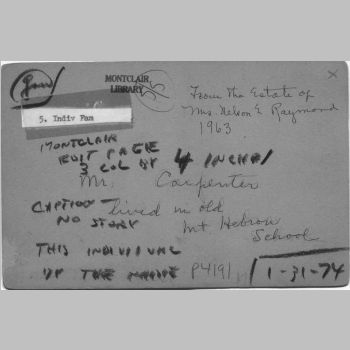 MONTCLAIR
LIBRARY
From the Estate of
Mrs. Nelson E. Raymond
1963
5. Indiv Fam
MONTCLAIR
EDIT PAGE
3 COL BY 4 INCHES
Mr. Carpenter
CAPTION lived in old
NO STORY Mt Hebron
School
THIS INDIVIDUAL
P4191
1-31-74